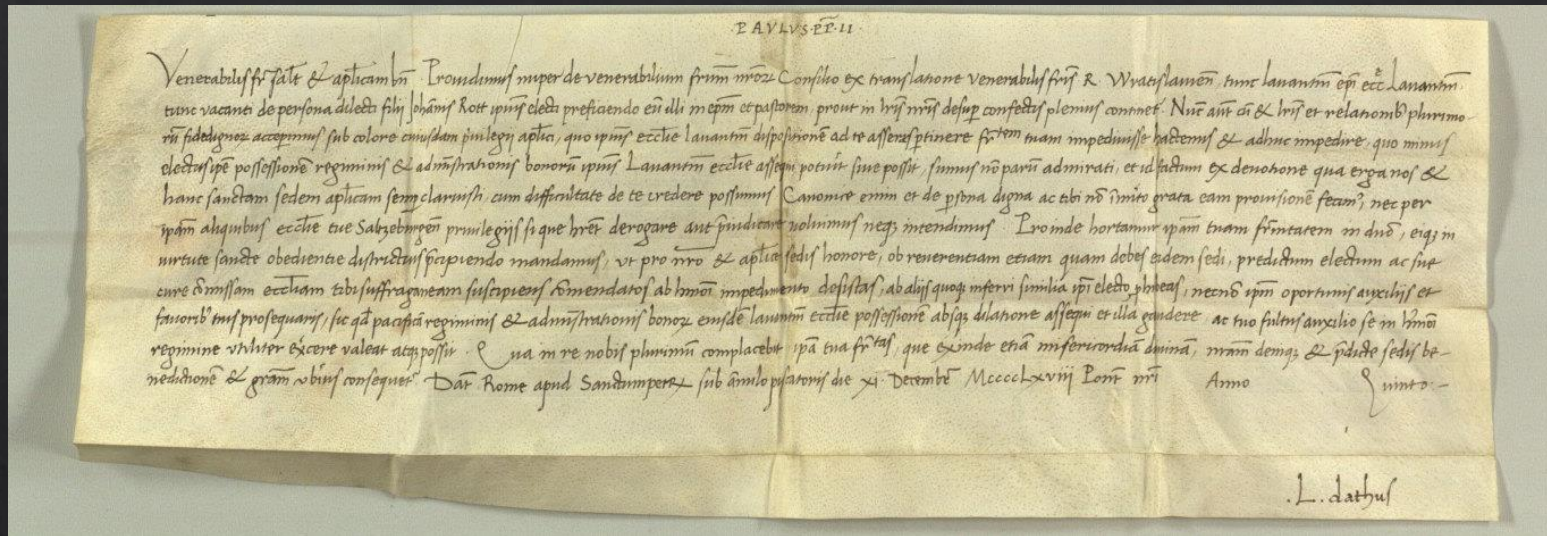 .PAVLVS.PP̄.II.
Venerabilis fr̄ salt̄ & ap̄licam bn̄ . Prouidimus nuper de venerabilium frūm nr̄orꝝ Consilio ex translatione venerabilis fr̄is R. Wratislauien̄ . tunc lauantin̄ ep̄i ecc̄e Lauantin̄ .
tunc vacanti de persona dilecti filij Johānis Rott ipius electi preficiendo eū illi in epm̄ et pastorem, prout in lr̄is nr̄is desup confectis plenius continet̄ . Nunc aut̄ cū & lr̄is et relationib plurimo-
rū fidedignoꝝ acceperimus sub colore cuiusdam pͥuilegij ap̄lici , quo ipius ecclīe lauantin̄ dispositionē ad te asseris ptinere fr̄tem tuam impediuisse hactenus & adhuc impedire , quo minus
electus ipē possessionē regiminis & administrationis bonorū ipius Lauantin̄ ecclīe assequi potuerit siue possit , sumus nō parū admirati , et id factum ex deuotione qua erga nos &
hanc sanctam sedem ap̄licam semp claruisti , cum difficultate de te credere possumus Canonice enim et de psona digna ac tibi nō īmito grata eam prouisionē fecim , nec per
ip̄am aliquibus ecclīe tue Saltzeburgen̄ priuilegijs si que hr̄et derogare aut p̄iudicare uolumus neqꝫ intendimus . Proinde hortamur ip̄am tuam fr̄nitatem in dn̄o , eiqꝫ in
virtute sancte obedientie districtius p̄cipiendo mandamus , vt pro nr̄o & ap̄lice sedis honore , ob reuerentiam etiam quam debes eidem sedi , predictum electum ac sue
cure cōmissam eccl̄iam tibi suffraganeam suscipiens cōmendatos ab hm̄oi impedimento desistas , ab alijs quoqꝫ inferri similia ip̄i electo phibeas , necnō ipm̄ oportunis auxilijs et
fauorib tuis prosequaris , sic qd̄ pacificā regiminis & administrationis bonoꝝ eiusdē lauantin̄ ecclīe possessionē absqꝫ dilatione assequi et illa gaudere , ac tuo fultus auxilio se in hm̄oi
regimine vtiliter exͨere valeat atqꝫ possit . Qua in re nobis plurimū complacebit ip̄a tua fr̄tas , que exinde etiā misericordiā diuinā , nr̄am demqꝫ & p̄dicte sedis be-
nedictionē & grām vberius consequet̄ Dat̄ Rome apud Sanctumpetrꝝ sub ānulo piscatoris die xi. Decembr̄ MccccLxviii Pont̄ nr̄i Anno Quinto.-
.L. dathus